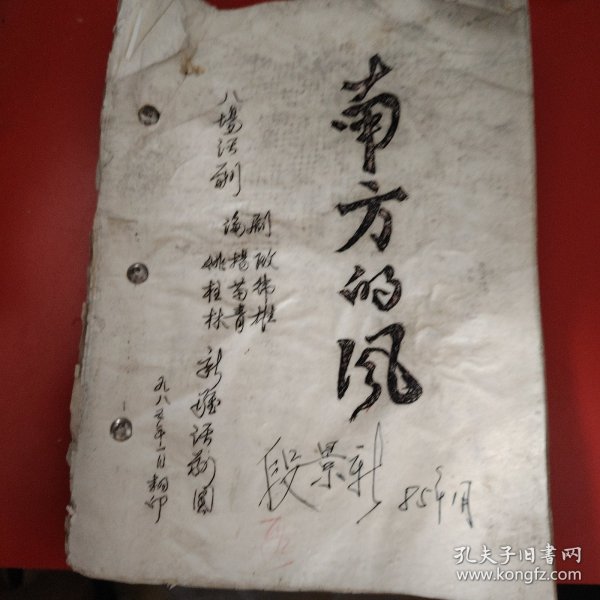 南方的风
八场话剧
编剧
欧伟雄
杨苗青
姚柱林
新疆话剧团
一九八五年一月翻印
段景新
85年1月
孔夫子旧书网
www.kongfz.com